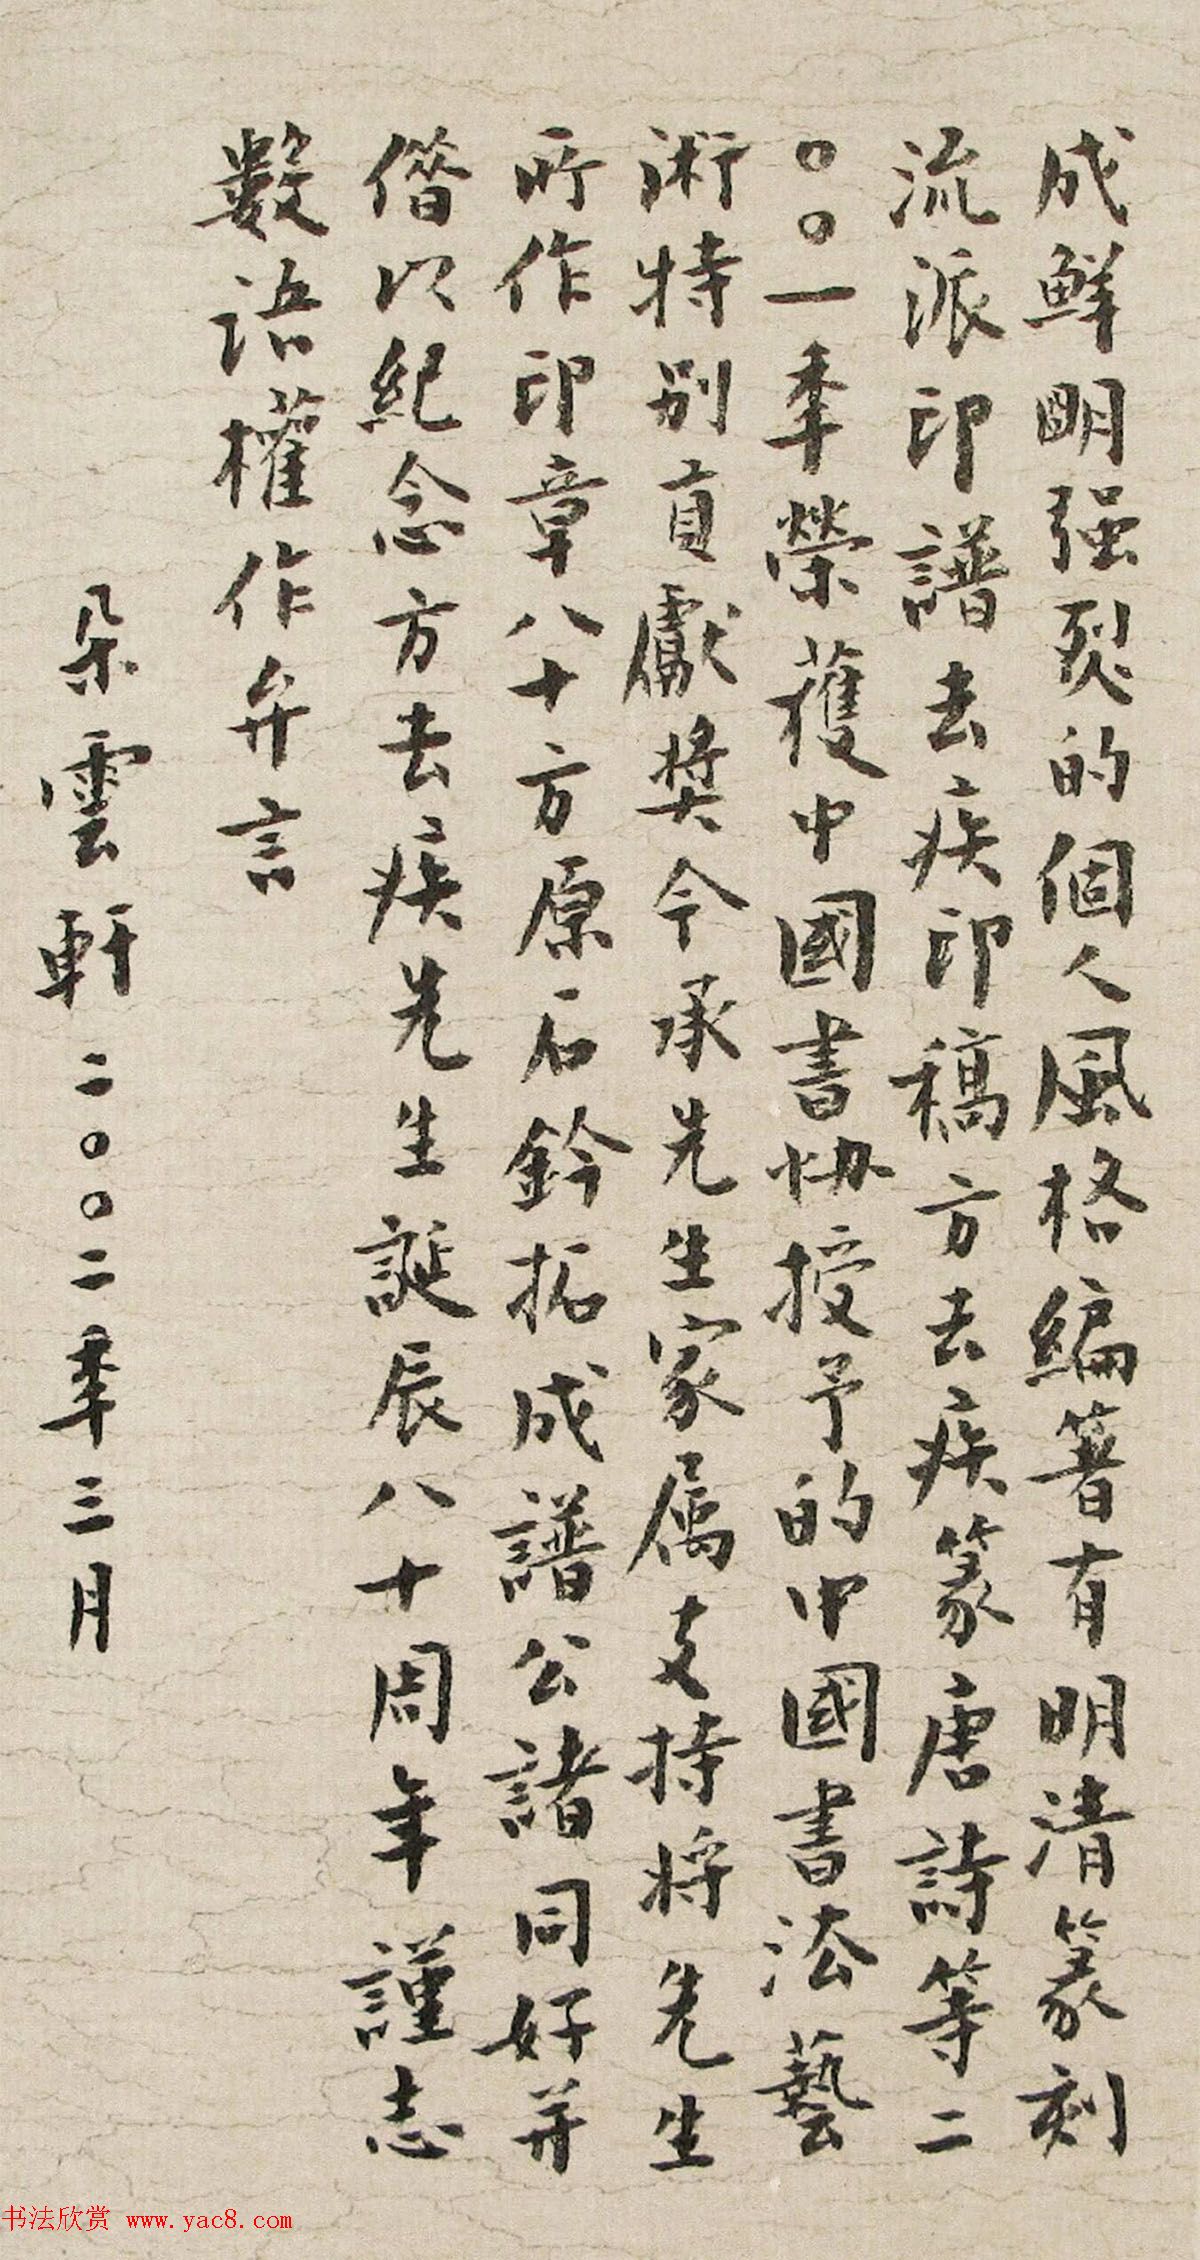 成鮮明强烈的個人風格編著有明清篆刻
流派印譜去疾印稿方去疾篆唐詩等二
〇〇一季榮獲中國書协授予的中國書法藝
術特别貢獻奖今承先生家属支持将先生
所作印章八十方原石鈐拓成譜公諸同好并
偕以紀念方去疾先生誕辰八十周年謹志
數语權作弁言
朵雲軒二〇〇二季三月
书法欣赏 www.yac8.com